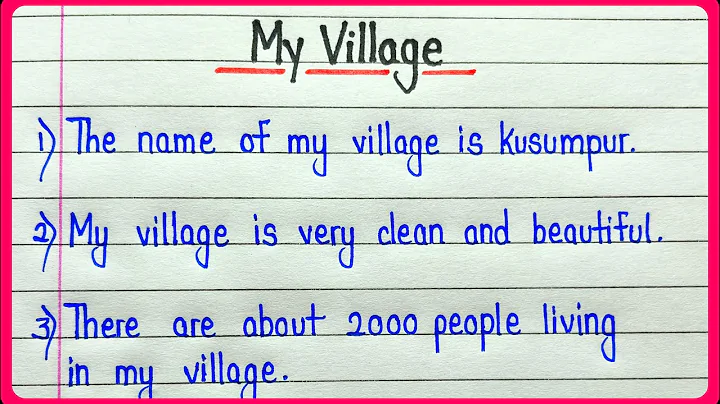 My Village
1) The name of my village is Kusumpur.
2) My village is very clean and beautiful.
3) There are about 2000 people living
in my village.